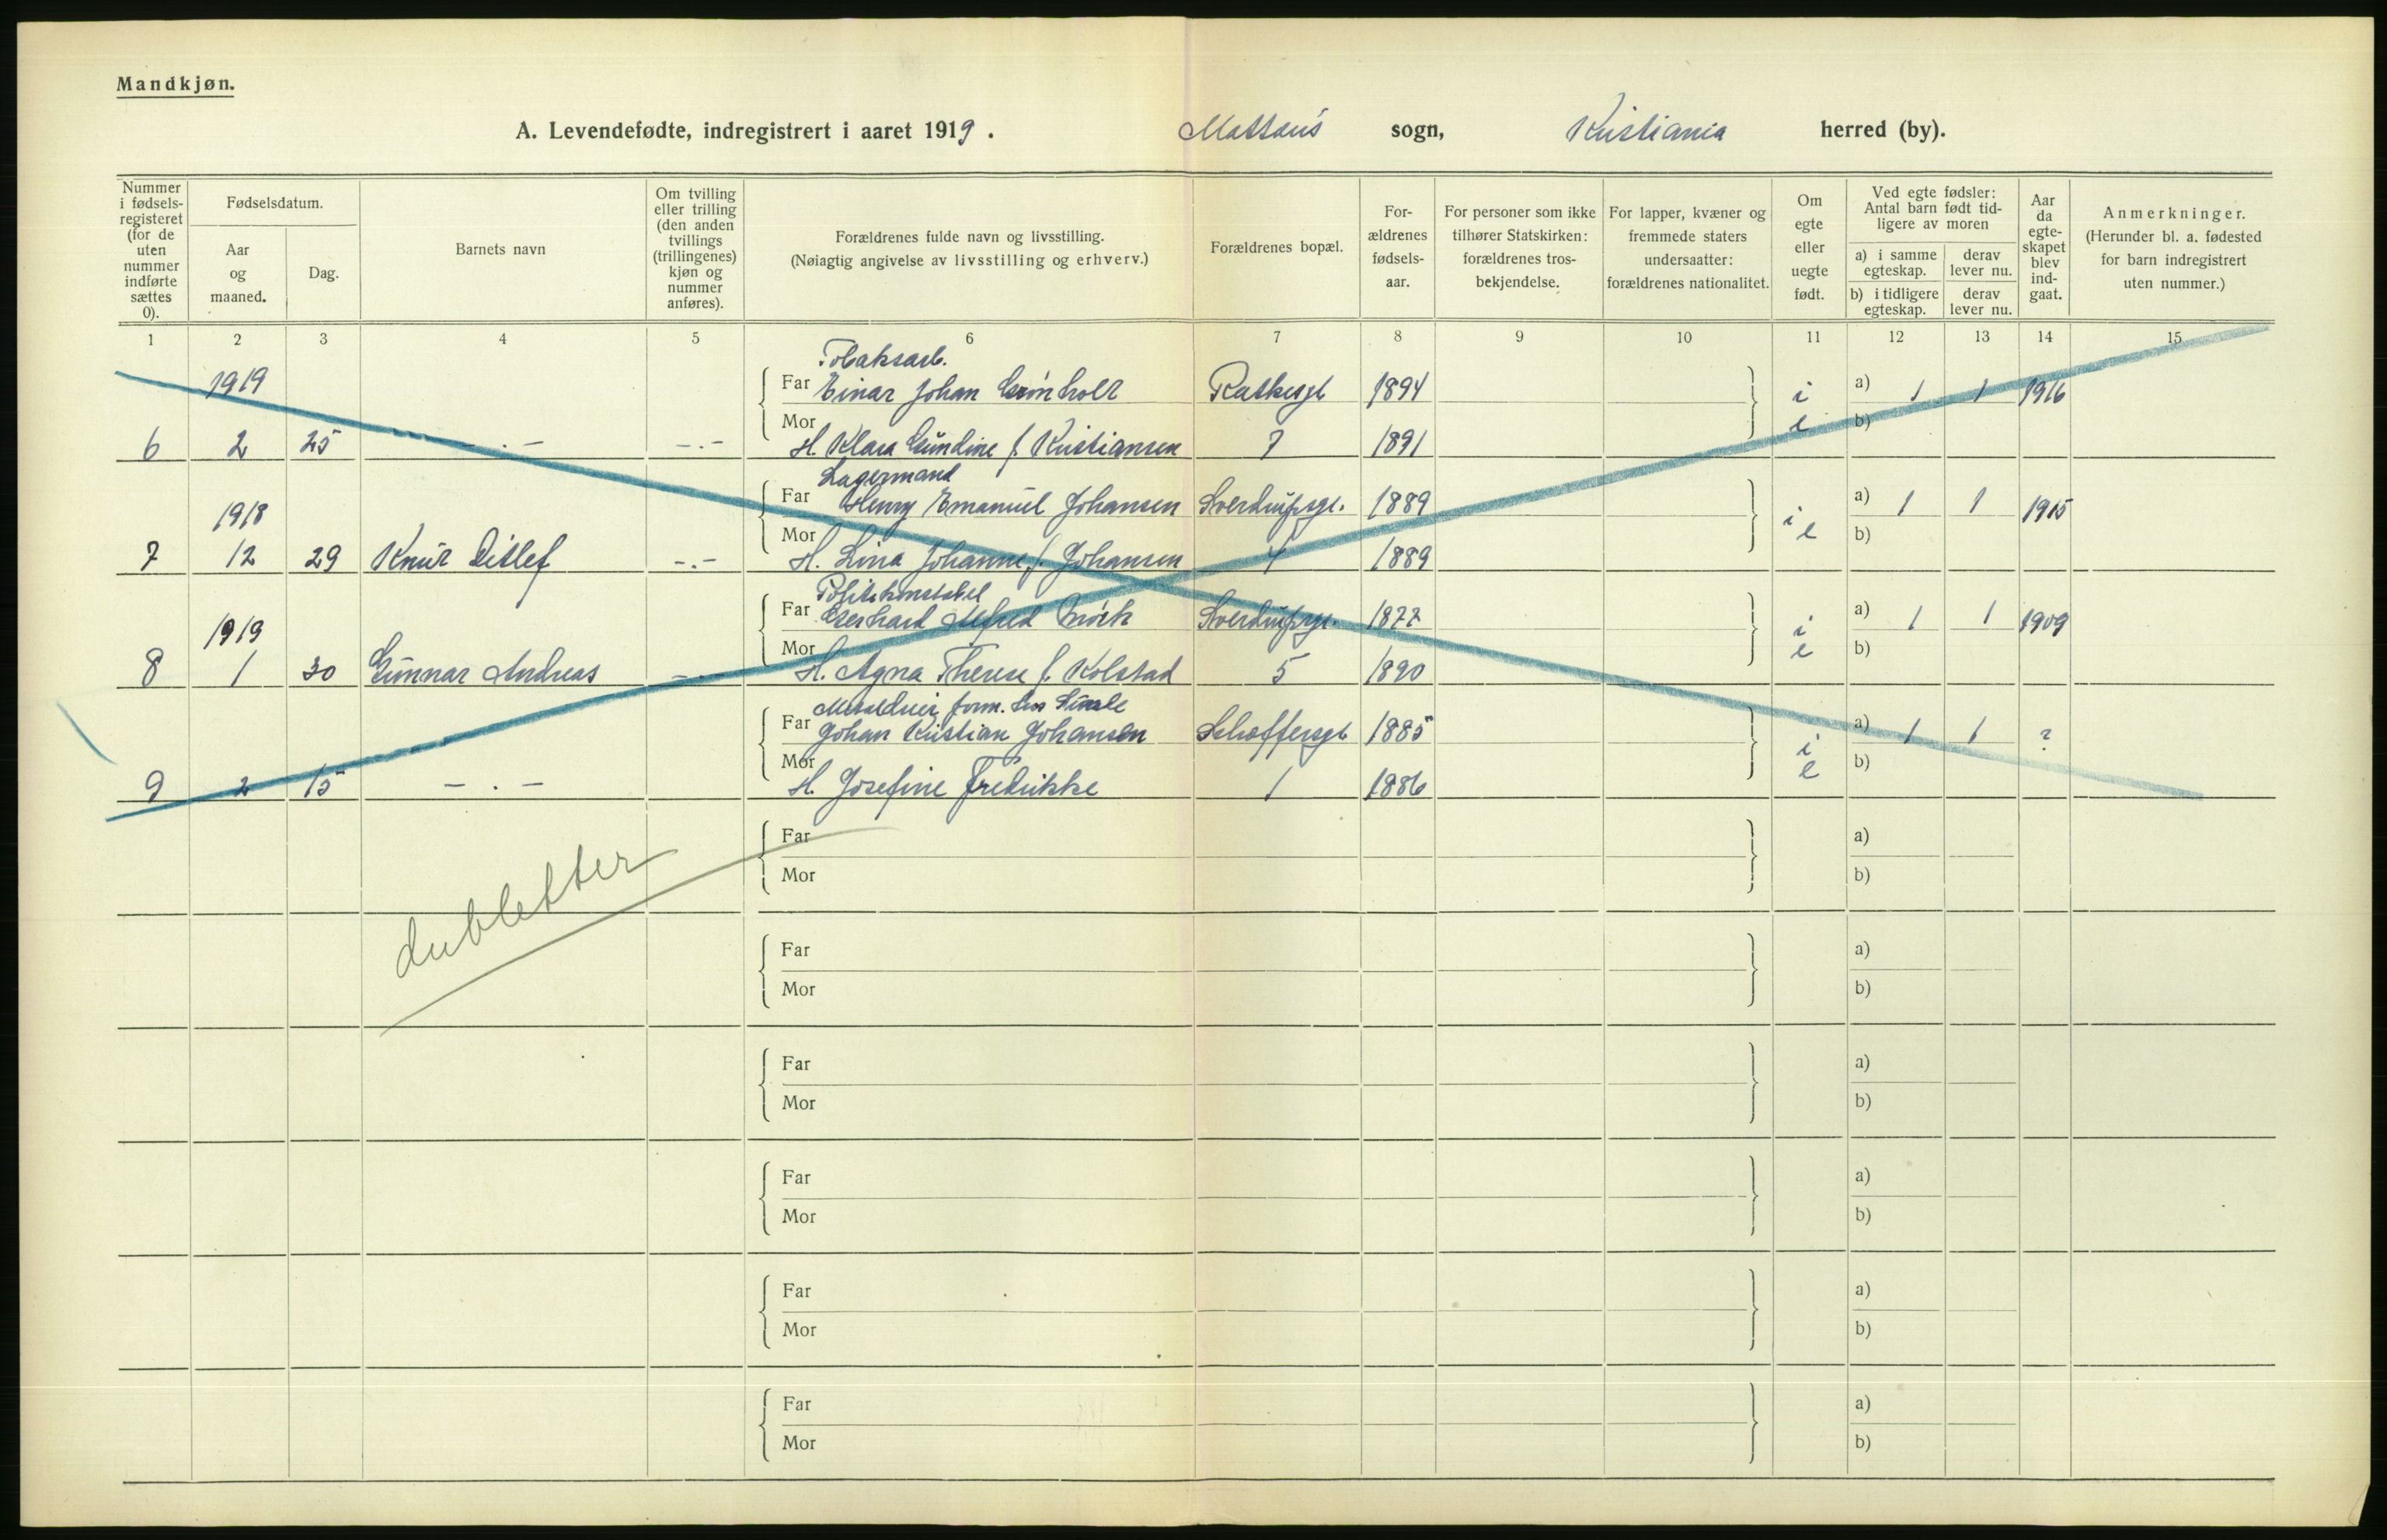 Mandkjøn.
A. Levendefødte, indregistrert i aaret 1919. Mattæus sogn, Kristiania herred (by).
Nummer i fødselsregisteret (for de uten nummer indførte sættes 0).
Fødselsdatum.
Aar og maaned.
Dag.
Barnets navn
Om tvilling eller trilling (den anden tvillings (trillingenes) kjøn og nummer anføres).
Forældrenes fulde navn og livsstilling. (Nøiagtig angivelse av livsstilling og erhverv.)
Forældrenes bopæl.
For-ældrenes fødsels-aar.
For personer som ikke tilhører Statskirken: forældrenes tros-bekjendelse.
For lapper, kvæner og fremmede staters undersaatter: forældrenes nationalitet.
Om egte eller uegte født.
Ved egte fødsler: Antal barn født tid-ligere av moren
a) i samme egteskap. derav lever nu.
b) i tidligere egteskap. derav lever nu.
Aar da egte-skapet blev ind-gaat.
Anmerkninger. (Herunder bl. a. fødested for barn indregistrert uten nummer.)
1 2 3 4 5 6 7 8 9 10 11 12 13 14 15
Tobaksarb.
1919 Far Einar Johan Grönholt Rathkesgt 1894 i a) 1 1 1916
6 2 25 — . — — . — Mor H. Klara Gundine f. Kristiansen 7 1891 e b)
Lagermand
1918 Far Henry Emanuel Johansen Sverdrupsgt. 1889 i a) 1 1 1915
7 12 29 Knut Ditlef — . — Mor H. Lina Johanne f. Johansen 4 1889 e b)
Politikonstabel
1919 Far Gerhard Alfred 1877 Sverdrupsgt. i a) 1 1 1909
8 1 30 Gunnar Andreas — . — Mor H. Agna Therese f. Kolstad 5 1890 e b)
form. hos
Far Johan Kristian Johansen Schæffersgt 1885 i a) 1 1 ?
9 2 15 — . — Mor H. Josefine Fredrikke 1 1886 e b)
Far a)
Mor b)
dubletter
Far a)
Mor b)
Far a)
Mor b)
Far a)
Mor b)
Far a)
Mor b)
Far a)
Mor b)